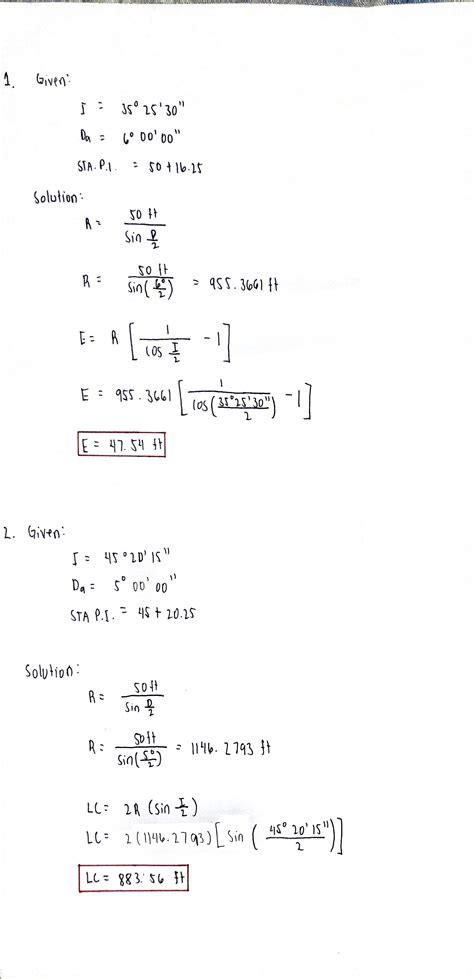 1. Given:
I = 35° 25' 30"
Da = 6° 00' 00"
STA. P.I. = 50 + 16.25
Solution:
R = 50 ft / sin D/2
R = 50 ft / sin(6°/2) = 955.3661 ft
E = R [ 1 / cos I/2 - 1 ]
E = 955.3661 [ 1 / cos(35°25'30"/2) - 1 ]
E = 47.54 ft
2. Given:
I = 45° 20' 15"
Da = 5° 00' 00"
STA P.I. = 45 + 20.25
Solution:
R = 50 ft / sin D/2
R = 50 ft / sin(5°/2) = 1146.2793 ft
LC = 2R (sin I/2)
LC = 2 (1146.2793) [ sin ( 45° 20' 15" / 2 ) ]
LC = 883.56 ft